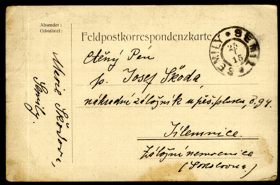 Absender:
Odesílatel:
Feldpostkorrespondenzkarte
SEMILY * SEMIL
15
Ctěný Pán
p. Josef Škoda
náhradní záložník u pěš. pluku č. 94.
Jilemnice
Záložní nemocnice
(Sokolovna)
Marie Škodová,
Semily.